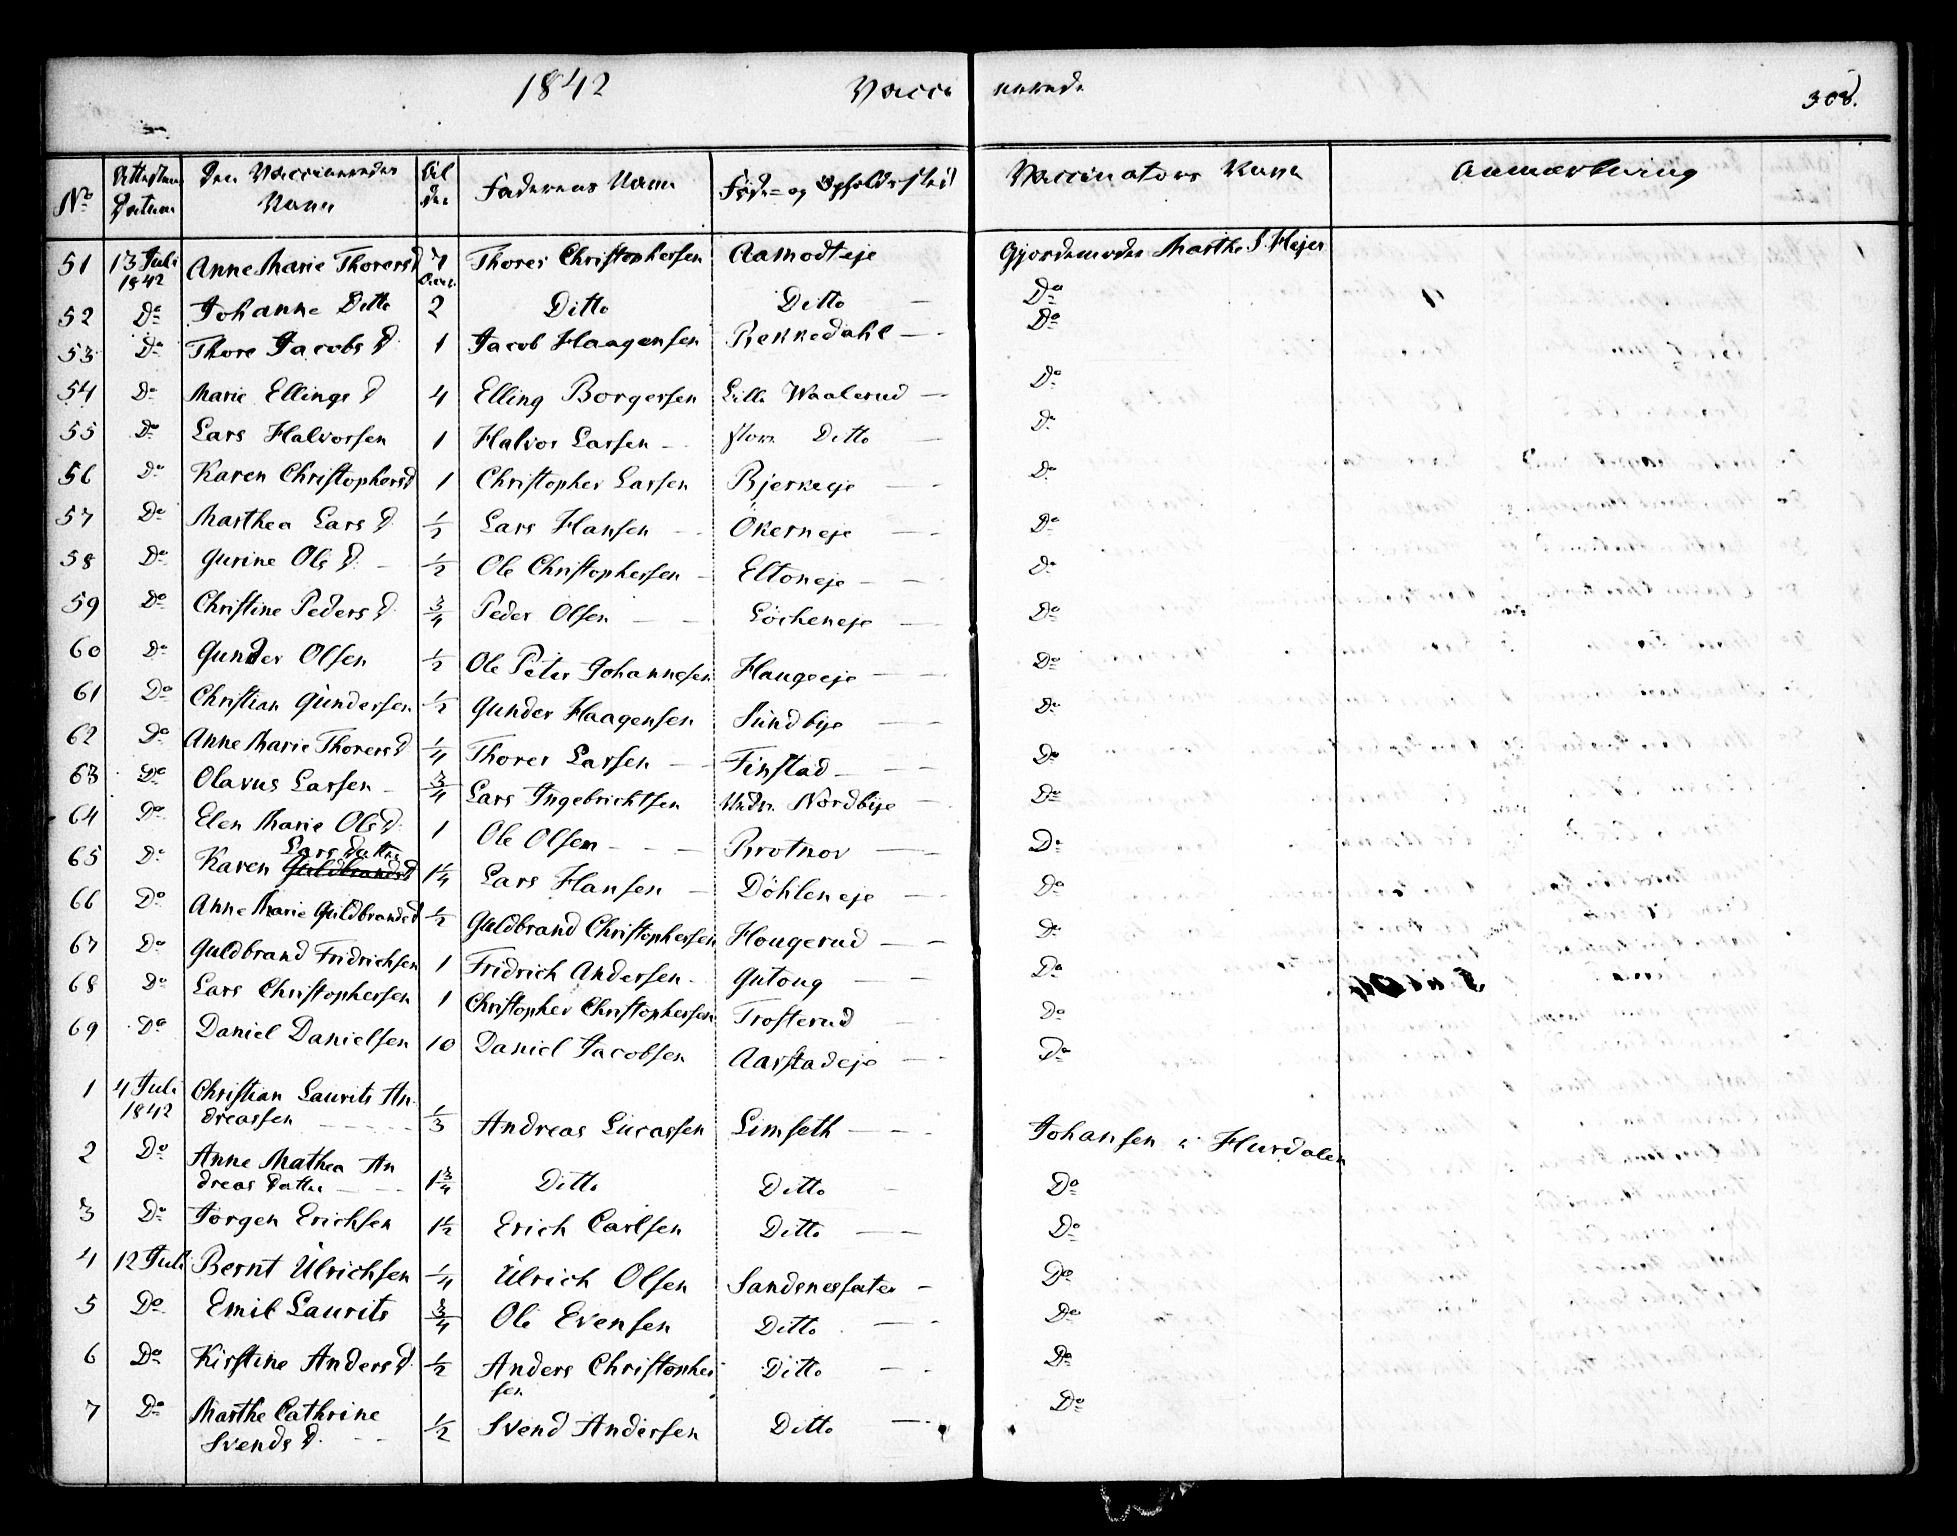 1842 Vaccinerede 308.
No Attestens Datum Den Vaccineredes Navn Alderen Faderens Navn Føde- og Opholdssted Vaccinators Navn Anmærkning
51 13 Juli 1842 Anne Marie Thorersd 7 Thorer Christophersen Aamodteje Gjordemoder Marthe S. Hejer
52 Do Johanne Ditto 2 Ditto Ditto Do
53 Do Thore Jacobs D. 1 Jacob Haagensen Rekkedahl Do
54 Do Marie Ellings D 4 Elling Borgersen Lille Waalerud Do
55 Do Lars Halvorsen 1 Halvor Larsen Store Ditto Do
56 Do Karen Christophersd 1 Christopher Larsen Bjerkeeje Do
57 Do Marthea Lars D. 1/2 Lars Hansen Økerneje Do
58 Do Gurine Ols D. 1/2 Ole Christophersen Eltoneje Do
59 Do Christine Peders D. 3/4 Peder Olsen Løcheneje Do
60 Do Gunder Olsen 1/2 Ole Peter Johannesen Haugeeje Do
61 Do Christian Gundersen 1/2 Gunder Haagensen Sundbye Do
62 Do Anne Marie Thorers D 1/4 Thorer Larsen Finstad Do
63 Do Olavus Larsen 3/4 Lars Ingebrichtsen Undr. Nordbye Do
64 Do Elen Marie Ols D. 1 Ole Olsen Brotnov Do
Lars Datter
65 Do Karen Guldbrands D 1 1/4 Lars Hansen Døhleneje Do
66 Do Anne Marie Guldbrands D 1/2 Guldbrand Christophersen Hougerud Do
67 Do Guldbrand Fridrichsen 1 Fridrich Andersen Gutoug Do
68 Do Lars Christophersen 1 Christopher Christophersen Trosterud Do
69 Do Daniel Danielsen 10 Daniel Jacobsen Aarstadeje Do
1 4 Juli 1842 Christian Laurits An-
dreassen 1/3 Andreas Lucassen Limseth Johansen i Hurdalen
2 Do Anne Mathea An
dreas Datter 1 3/4 Ditto Ditto Do
3 Do Jørgen Erichsen 1 1/2 Erich Carlsen Ditto Do
4 12 Juli Bernt Ulrichsen 1/4 Ulrich Olsen Sandsnesseter Do
5 Do Emil Laurits 3/4 Ole Evensen Ditto Do
6 Do Kirstine Anders D. 1/2 Anders Christopher
sen Ditto Do
7 Do Marthe Cathrine
Svends D. 1/2 Svend Andersen Ditto Do